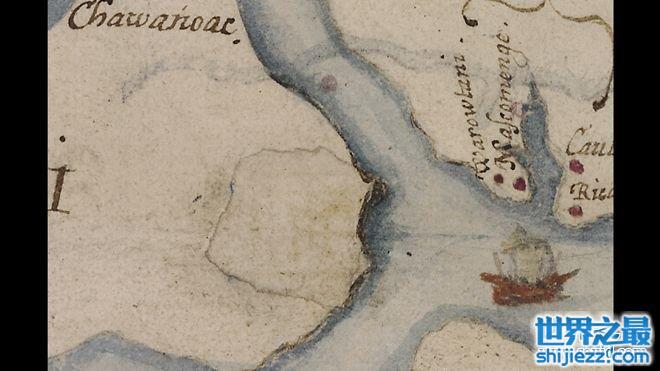 Chawanoac
Warowtani
Mascomenge
I
世界之最
shijiezz.com